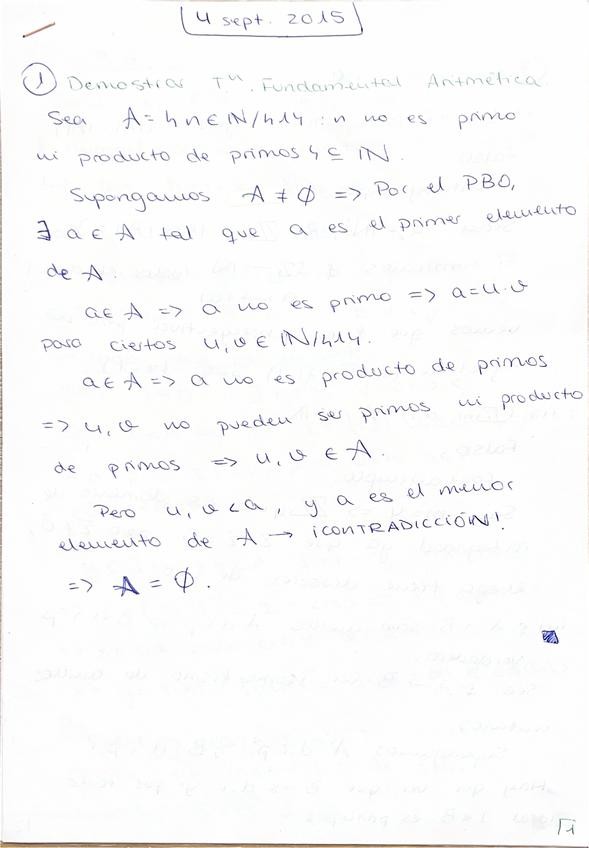 4 sept. 2015
① Demostrar T.ᵐ Fundamental Aritmética
Sea A = {n ∈ ℕ/{1} : n no es primo
ni producto de primos} ⊆ ℕ.
Supongamos A ≠ ∅ => Por el PBO,
∃ a ∈ A tal que a es el primer elemento
de A.
a ∈ A => a no es primo => a = u·v
para ciertos u, v ∈ ℕ/{1}.
a ∈ A => a no es producto de primos
=> u, v no pueden ser primos ni producto
de primos => u, v ∈ A.
Pero u, v < a, y a es el menor
elemento de A → ¡CONTRADICCIÓN!
=> A = ∅.